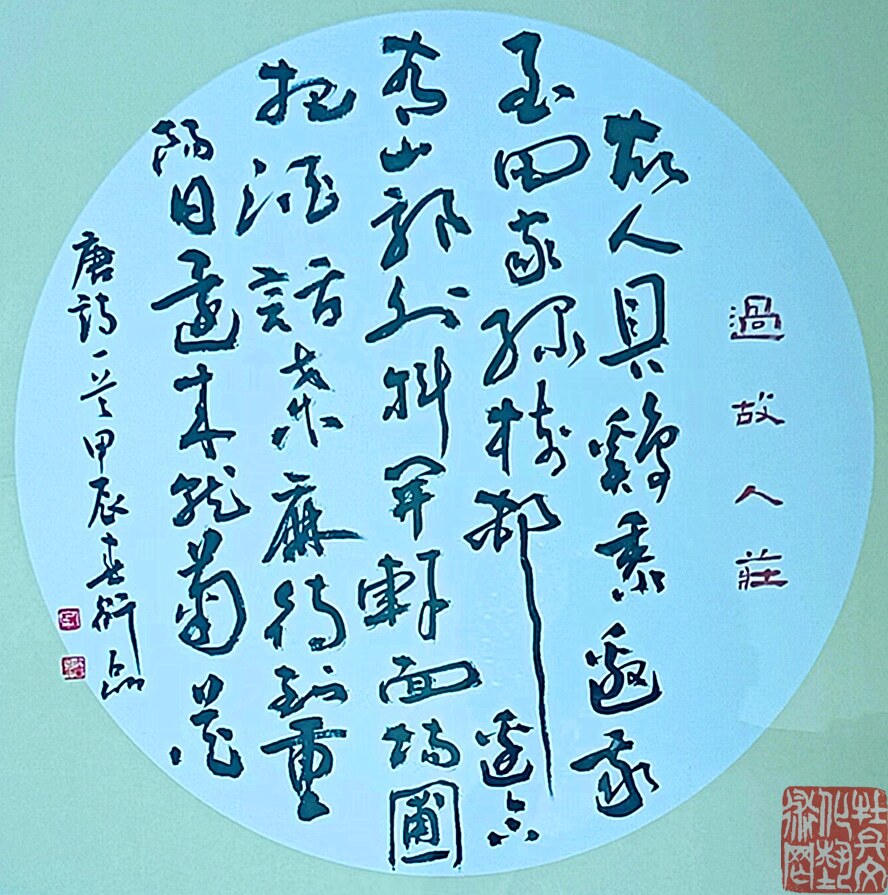 過故人莊
故人具鷄黍邀我
至田家綠樹邨邊合
青山郭外斜開軒面場圃
把酒話桑麻待到重
陽日還來就菊花
唐詩一首甲辰春